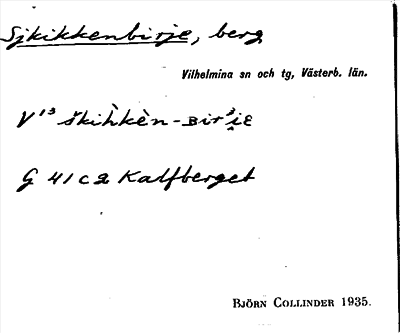 Sjkikkenbirje, berg
Vilhelmina sn och tg, Västerb. län.
V¹³
G 41 c 2 Kalfberget
BJÖRN COLLINDER 1935.